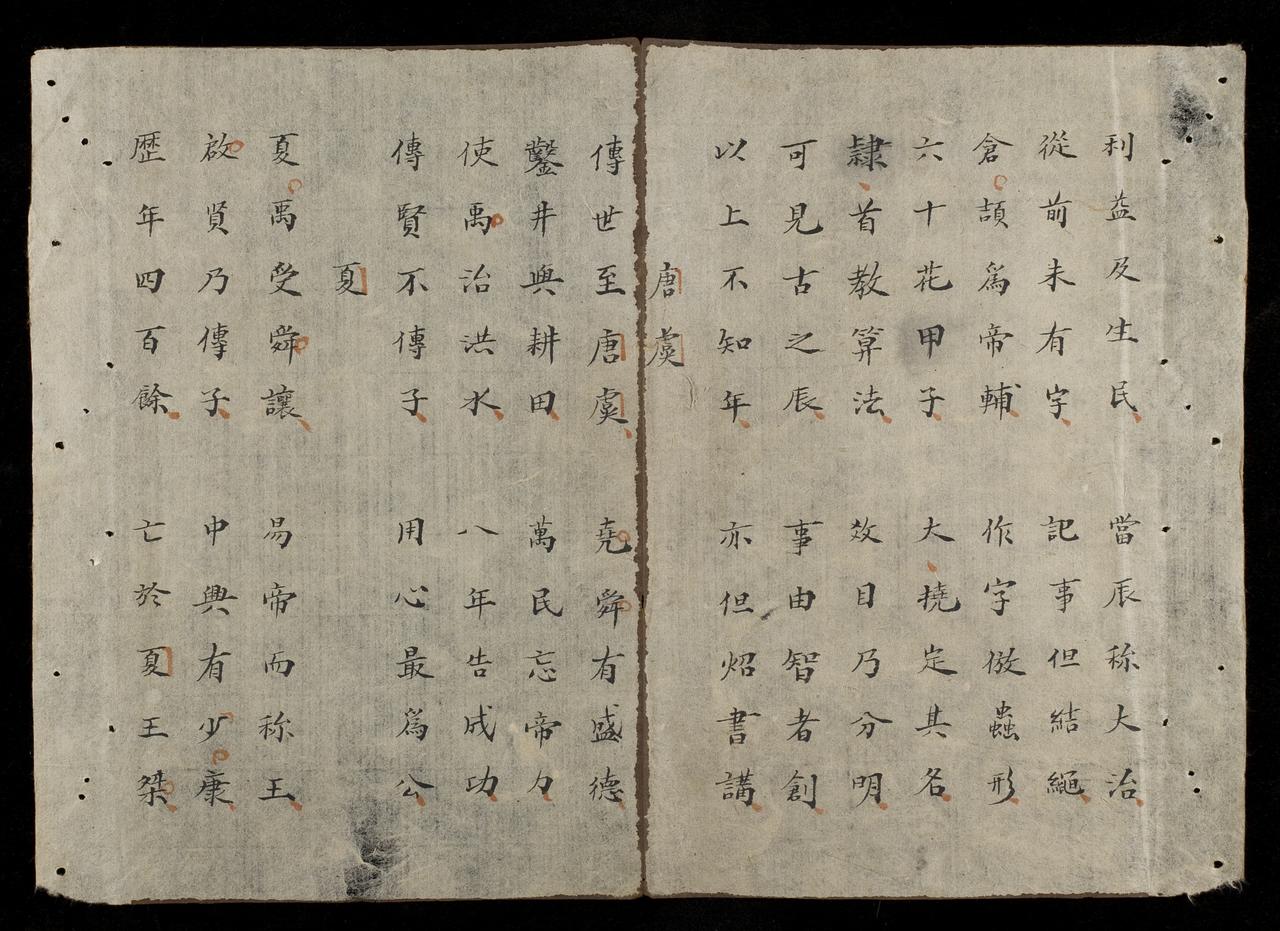 利益及生民　當辰称大治
從前未有字　記事但結繩
倉頡爲帝輔　作字倣蟲形
六十花甲子　大撓定其名
隷首教算法　效目乃分明
可見古之辰　事由智者創
以上不知年　亦但炤書講
唐虞
傳世至唐虞　堯舜有盛德
鑿井與耕田　萬民忘帝力
使禹治洪水　八年告成功
傳賢不傳子　用心最爲公
夏
夏禹受舜讓　易帝而称王
啟賢乃傳子　中興有少康
歷年四百餘　亡於夏王桀